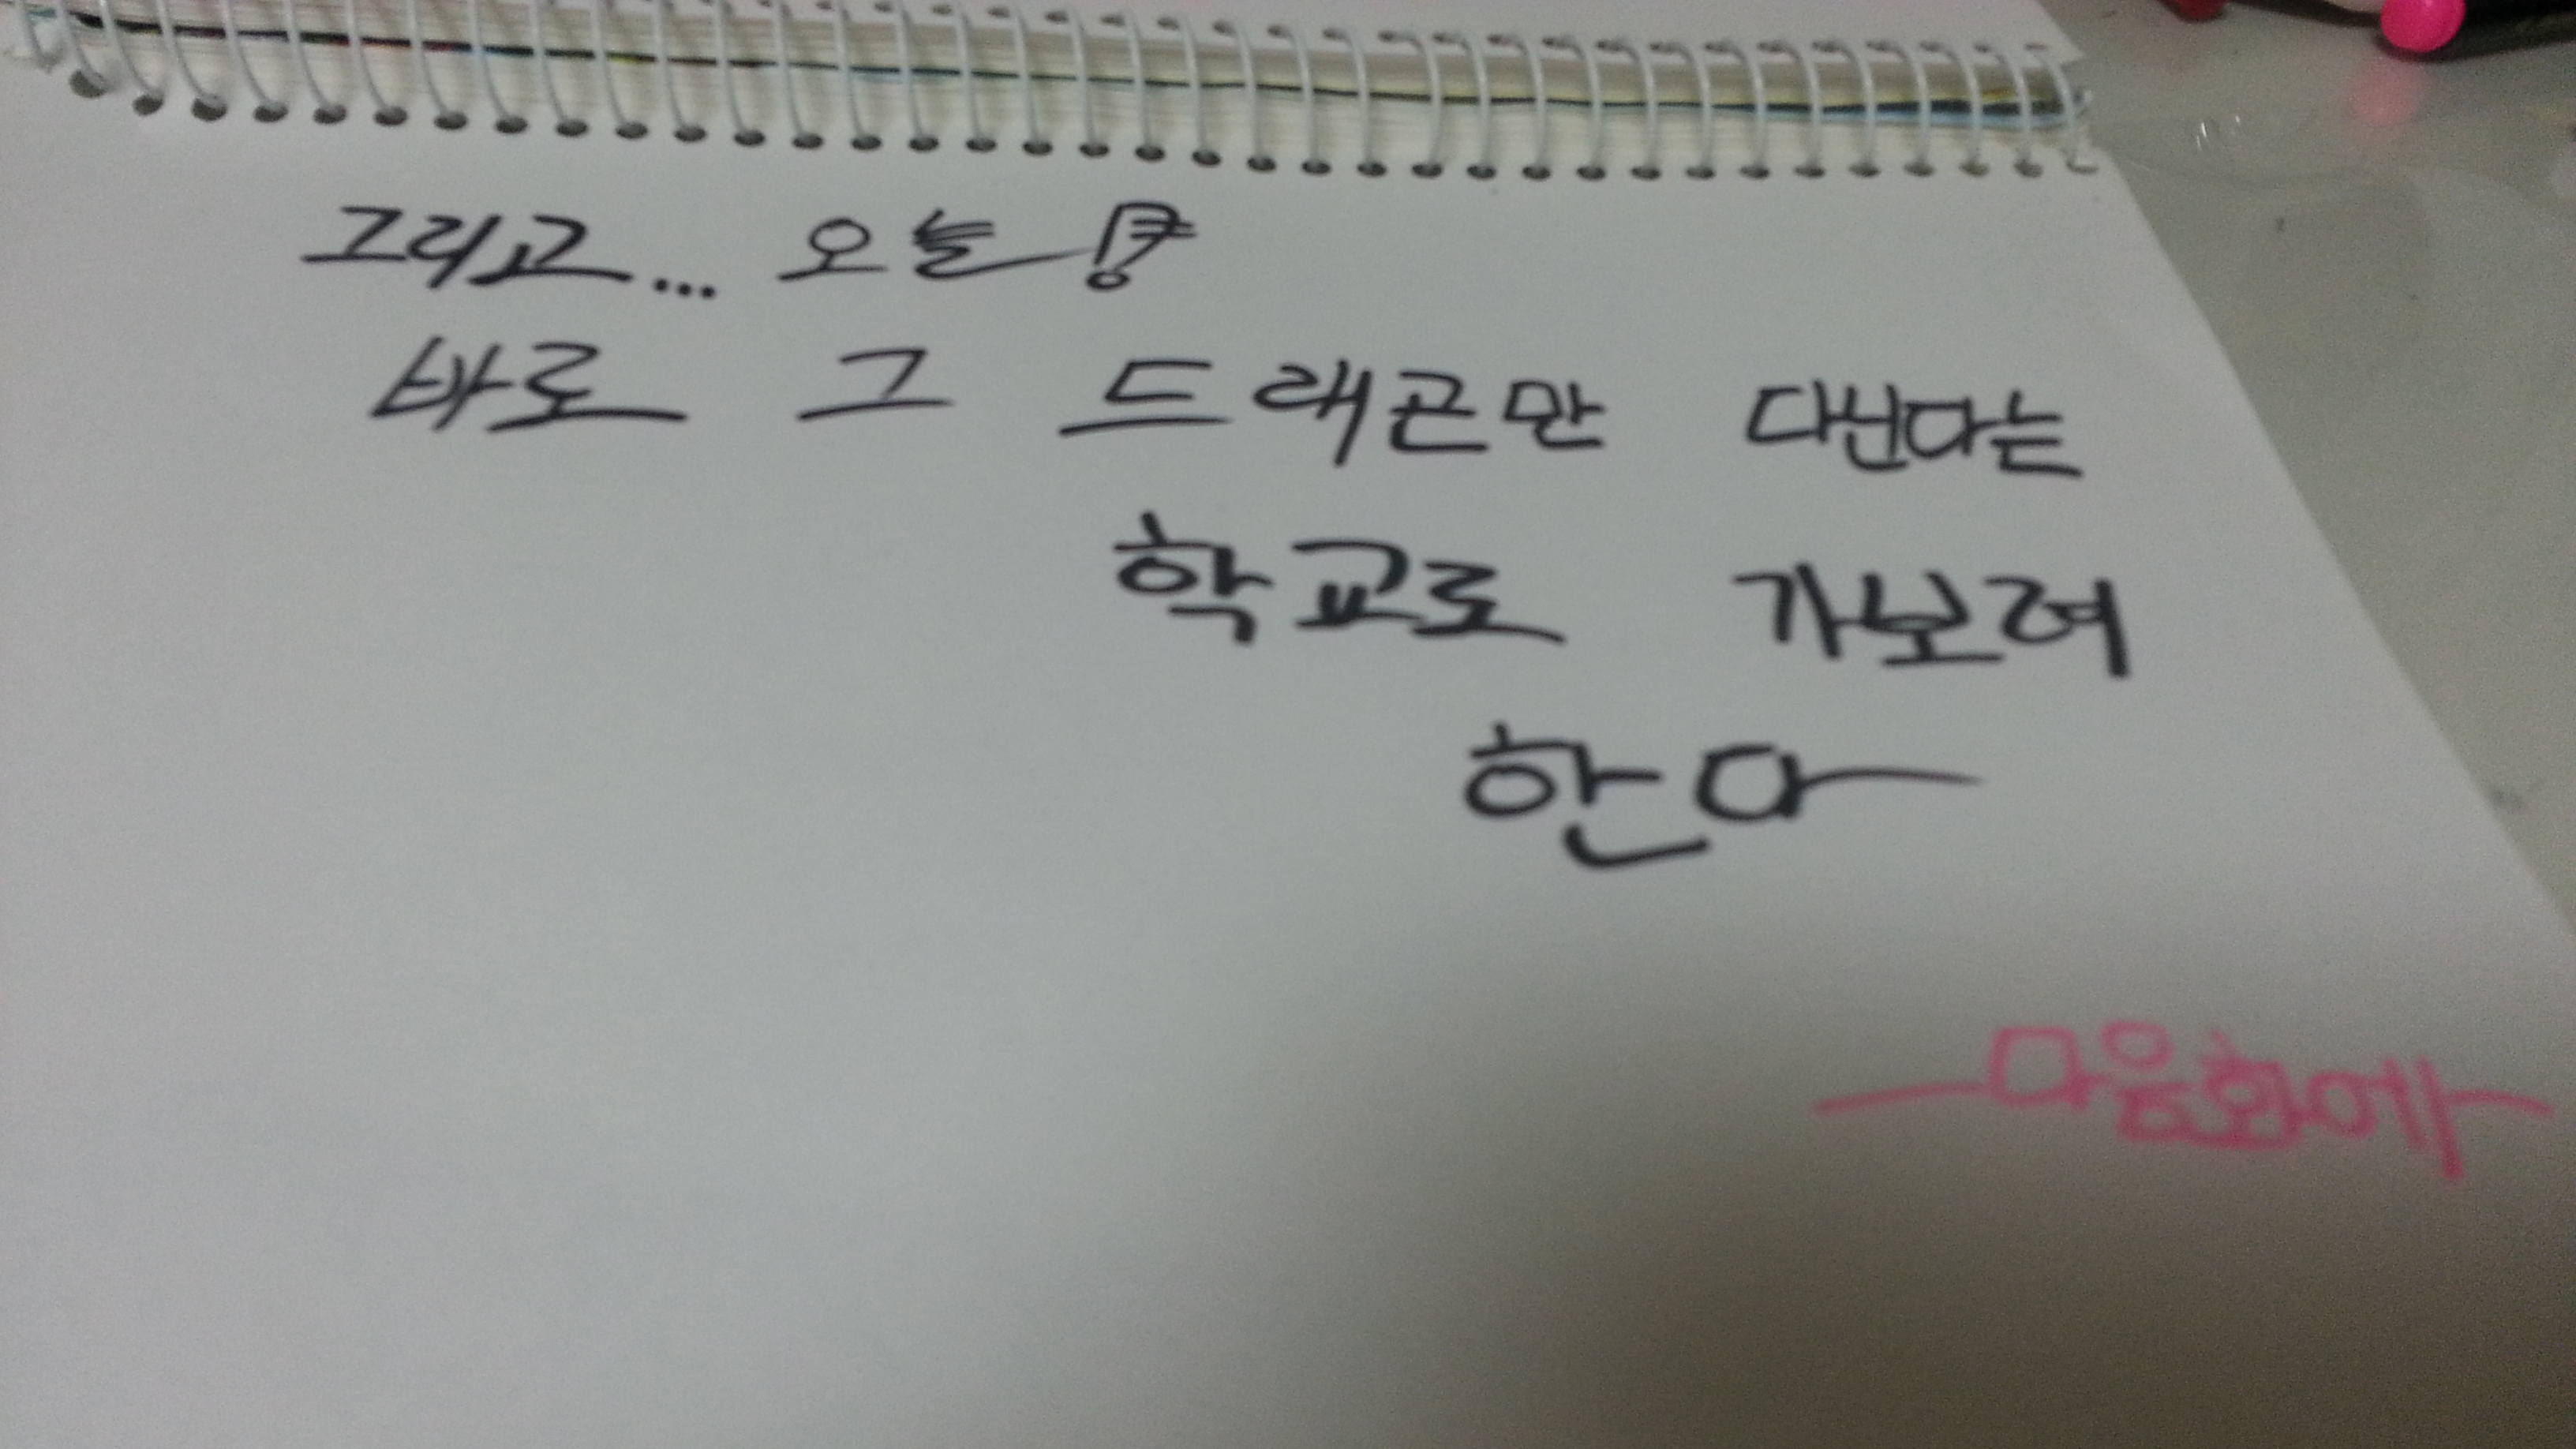 그리고... 오늘!
바로 그 드래곤만 다닌다는
학교로 가보려
한다
다음화에